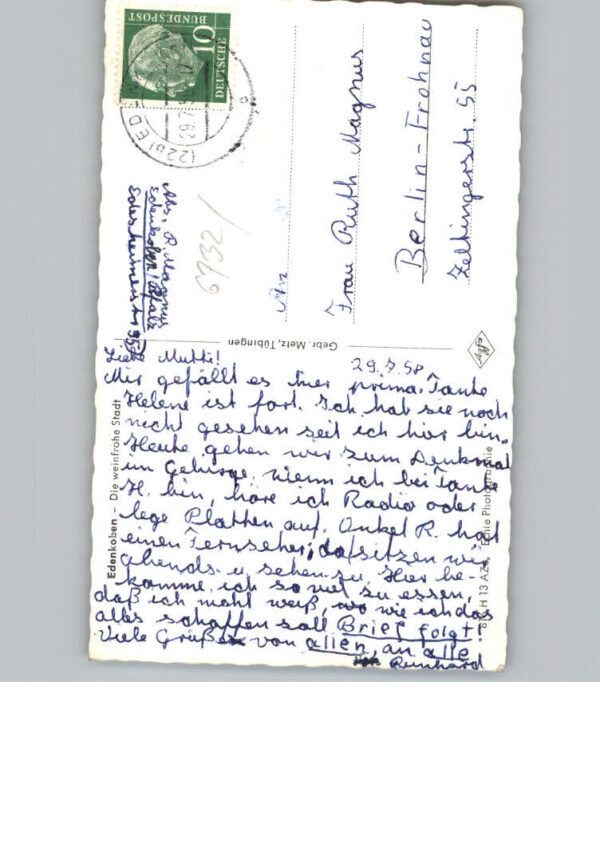 29.7.58
Liebe Mutti!
Mir gefällt es hier prima. Tante
Helene ist fort. Ich hab sie noch
nicht gesehen seit ich hier bin.
Heute gehen wir zum Denkmal
im Gebirge. Wenn ich bei Tante
H. bin, höre ich Radio oder
lege Platten auf. Onkel R. hat
einen Fernseher, da sitzen wir
abends u. sehen zu. Hier be-
komme ich so viel zu essen,
daß ich nicht weiß, wo wie ich das
alles schaffen soll Brief folgt!
Viele Grüße von allen, an alle
Reinhard
Abs. R. Magnus
Edenkoben/Pfalz
An
Frau Ruth Magnus
Berlin-Frohnau
Zeltingerstr. 55
6732/
DEUTSCHE
BUNDESPOST
10
(22b) ED
29.7.5
Gebr. Metz, Tübingen
Edenkoben – Die weinfrohe Stadt
Echte Photographie